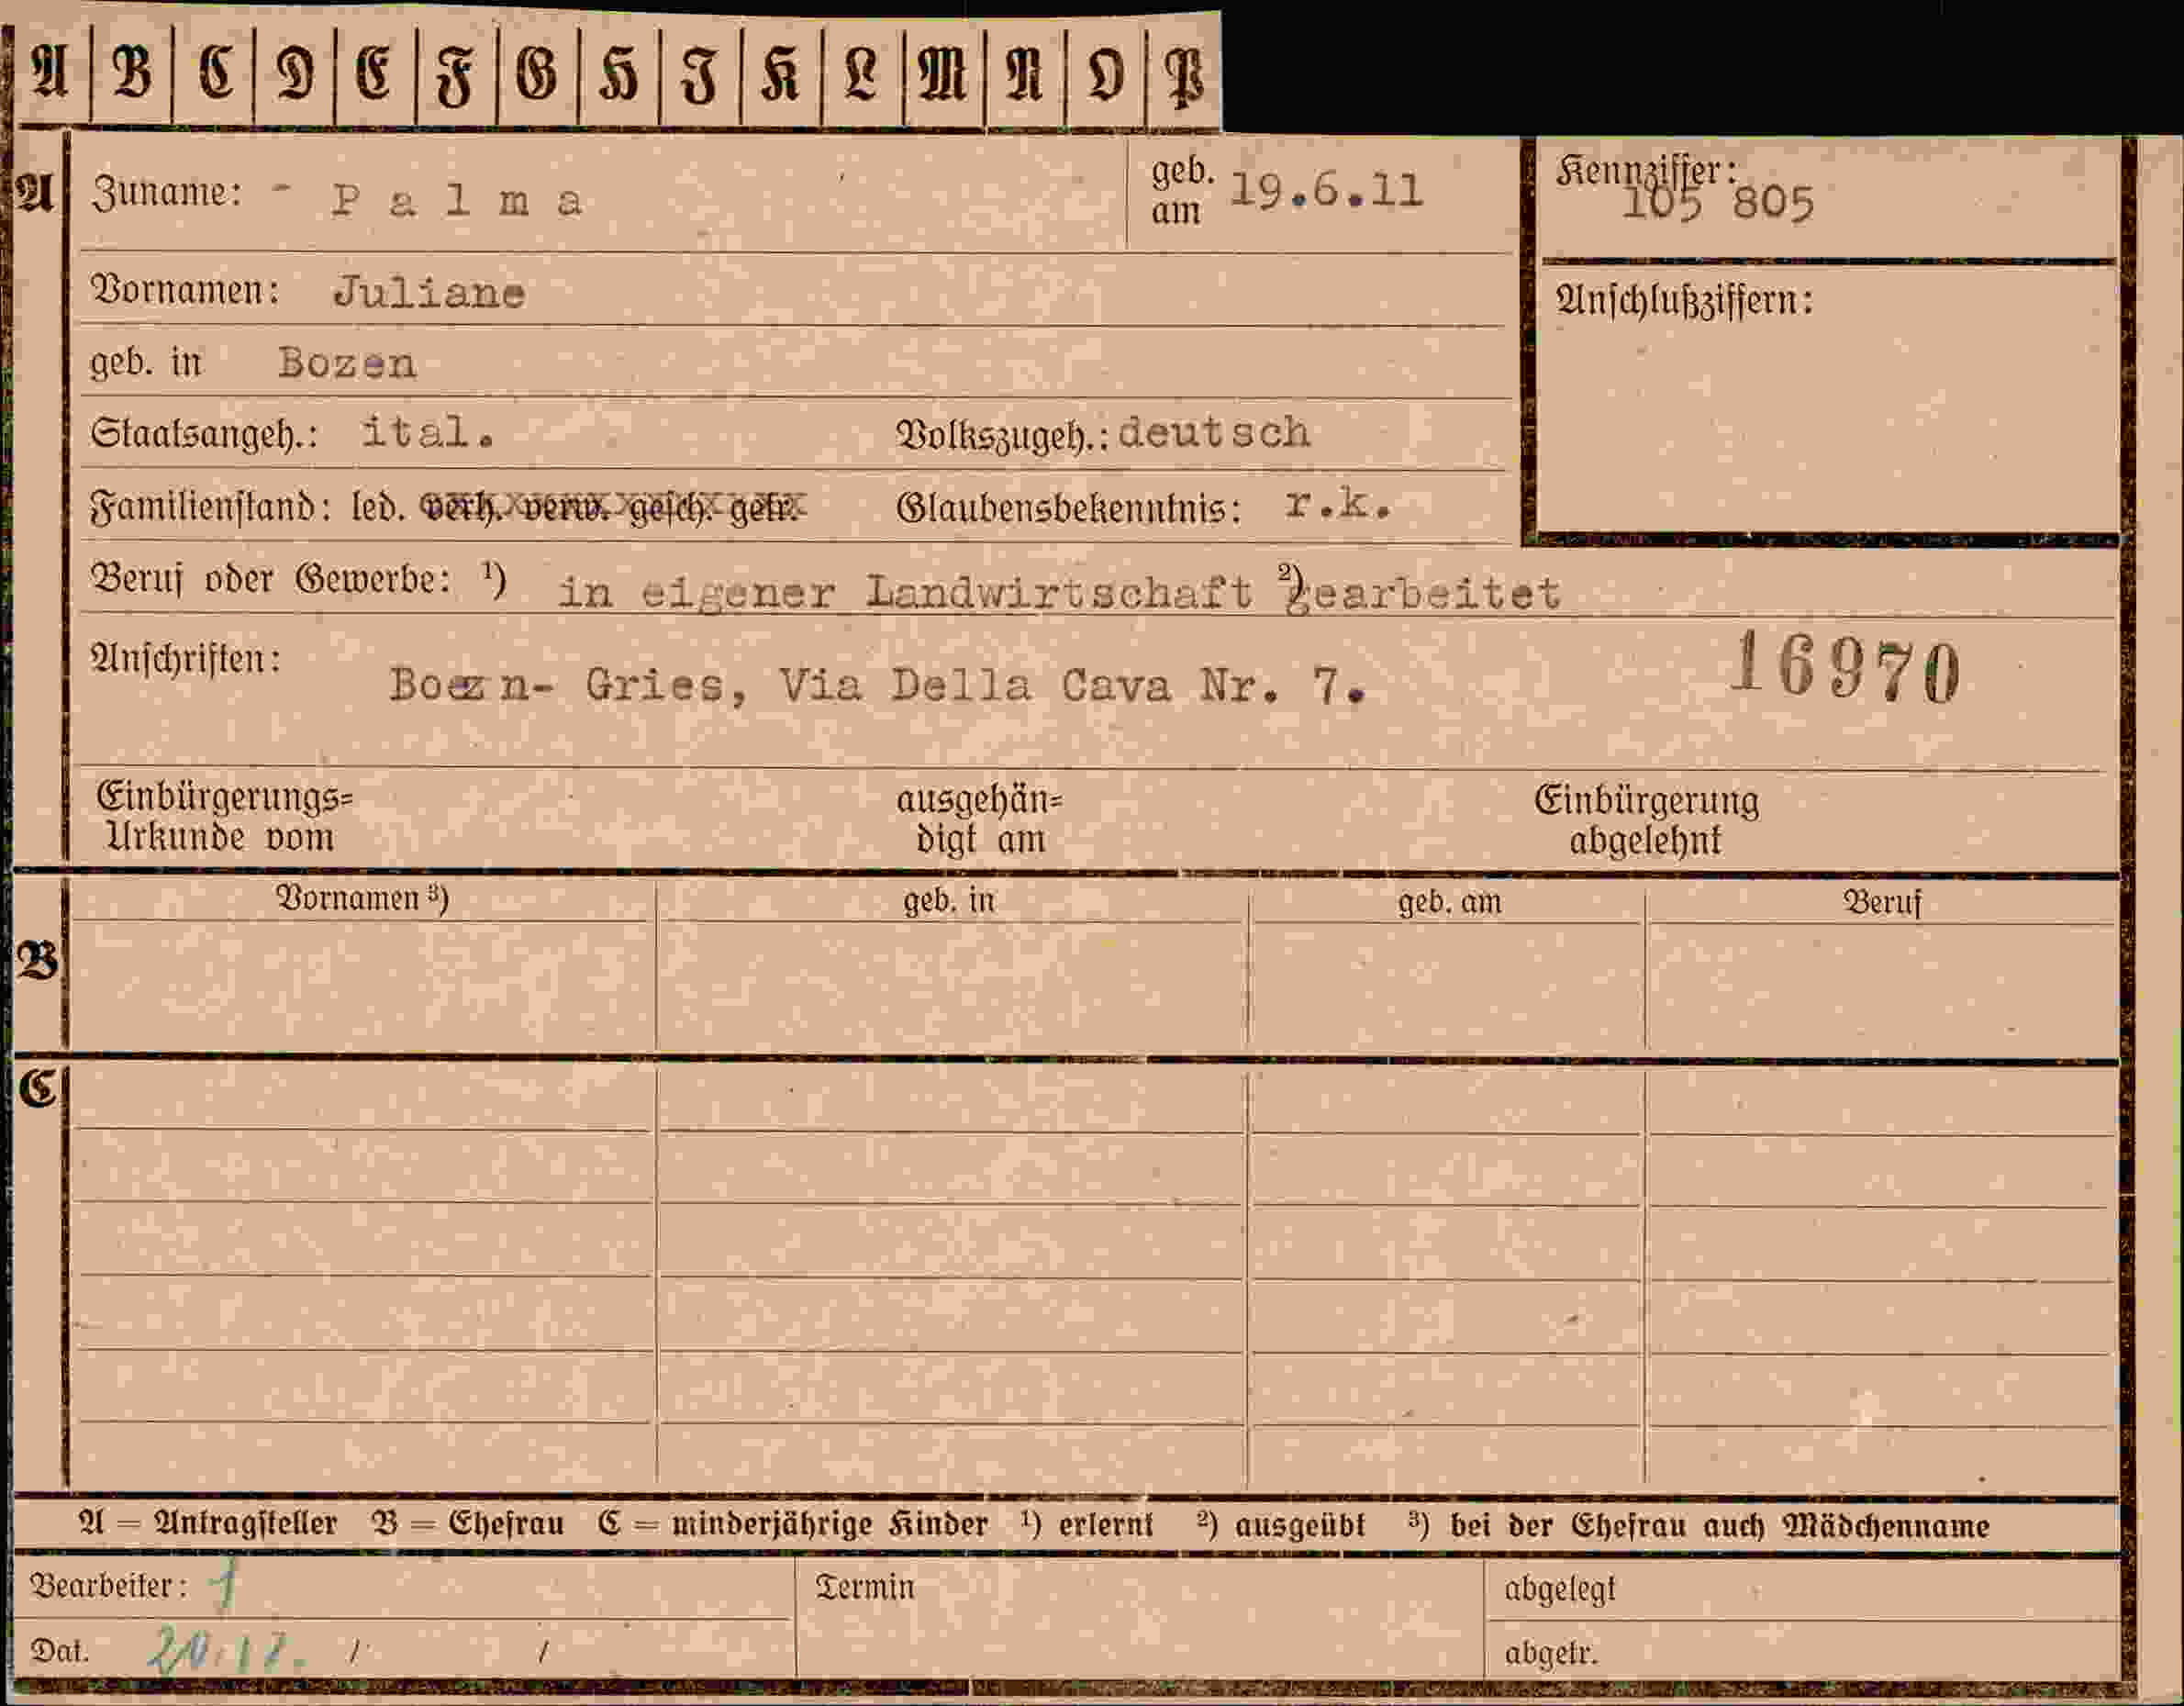 A B C D E F G H J K L M N O P
A Zuname: - Palma geb. am 19.6.11 Kennziffer: 105 805
Vornamen: Juliane Anschlußziffern:
geb. in Bozen
Staatsangeh.: ital. Volkszugeh.: deutsch
Familienstand: led. verh. verw. gesch. getr. Glaubensbekenntnis: r.k.
Beruf oder Gewerbe: ¹) in eigener Landwirtschaft ²) gearbeitet
Anschriften: Bozen- Gries, Via Della Cava Nr. 7. 16970
Einbürgerungs= ausgehän= Einbürgerung
Urkunde vom digt am abgelehnt
Vornamen ³) geb. in geb. am Beruf
B
C
A = Antragsteller B = Ehefrau C = minderjährige Kinder ¹) erlernt ²) ausgeübt ³) bei der Ehefrau auch Mädchenname
Bearbeiter: 1 Termin abgelegt
Dat. 20.12. / / abgetr.